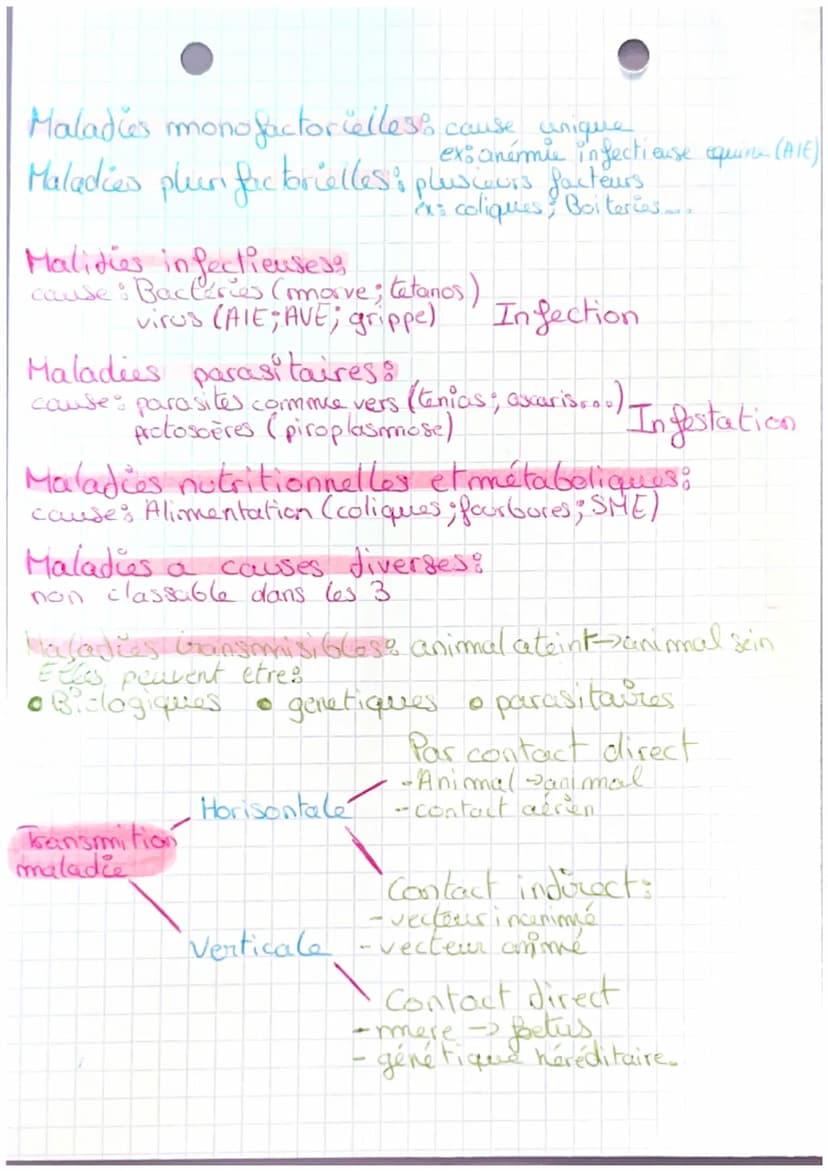 Maladies monofactorielles: cause unique
ex: anémie infectieuse equine (AIE)
Maladies plurifactorielles: plusieurs facteurs
ex: coliques; Boiteries...
Malidies infectieuses:
cause: Bactéries (morve; tetanos)
virus (AIE; AVE; grippe) Infection
Maladies parasitaires:
cause: parasites comme vers (tenias; ascaris...) Infestation
protosoères (piroplasmose)
Maladies nutritionnelles et métaboliques:
cause: Alimentation (coliques; fourbures; SME)
Maladies a causes diverses:
non classable dans les 3
Maladies transmisibles: animal ateint→animal sein
Elles peuvent etre:
• Biologiques • genetiques • parasitaires
Par contact direct
- Animal → animal
Horisontale - contact aérien
Transmition
maladie
Contact indirect:
- vecteur inanimé
Verticale - vecteur animé
Contact direct
- mere → foetus
- génétique héréditaire.